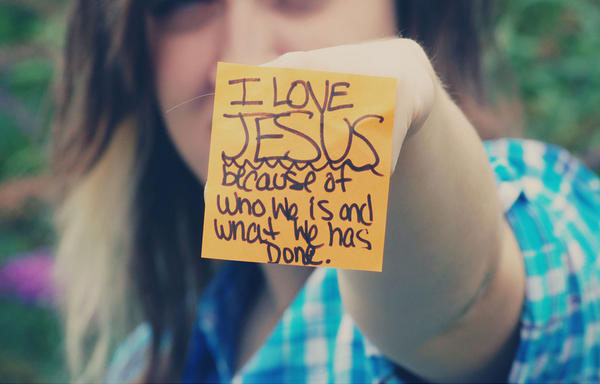 I LOVE
JESUS
because of
who He is and
what He has
Done.